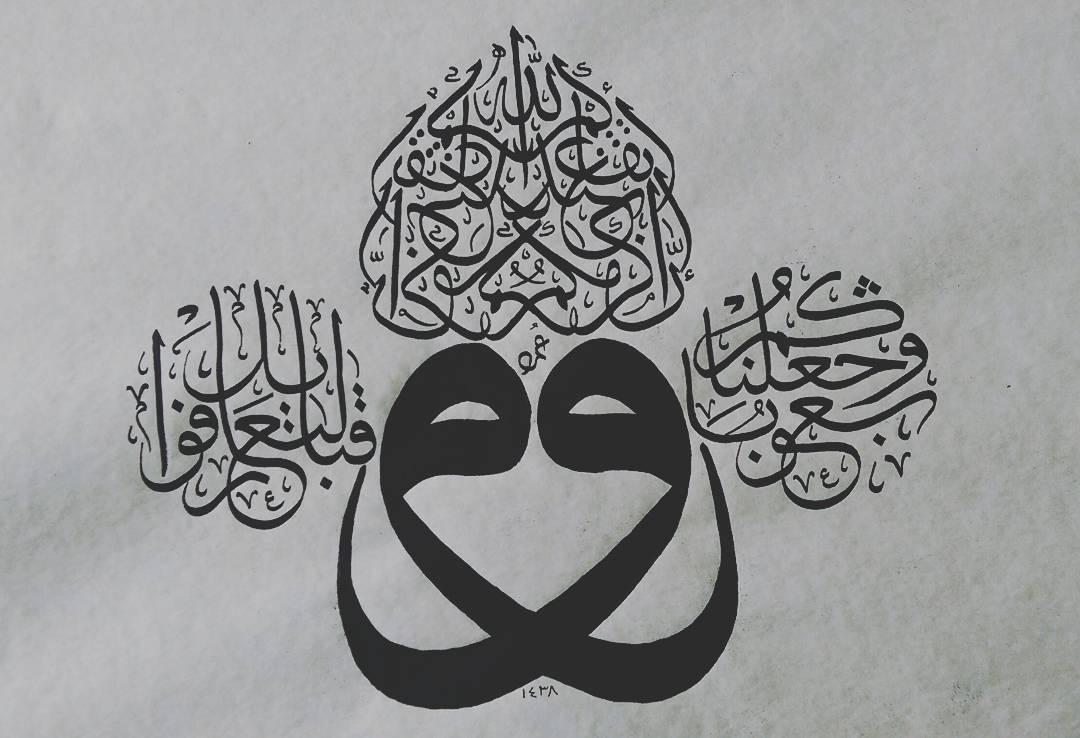 وجعلناكم شعوبا
و
قبائل لتعارفوا
إن أكرمكم عند الله أتقاكم
١٤٣٨